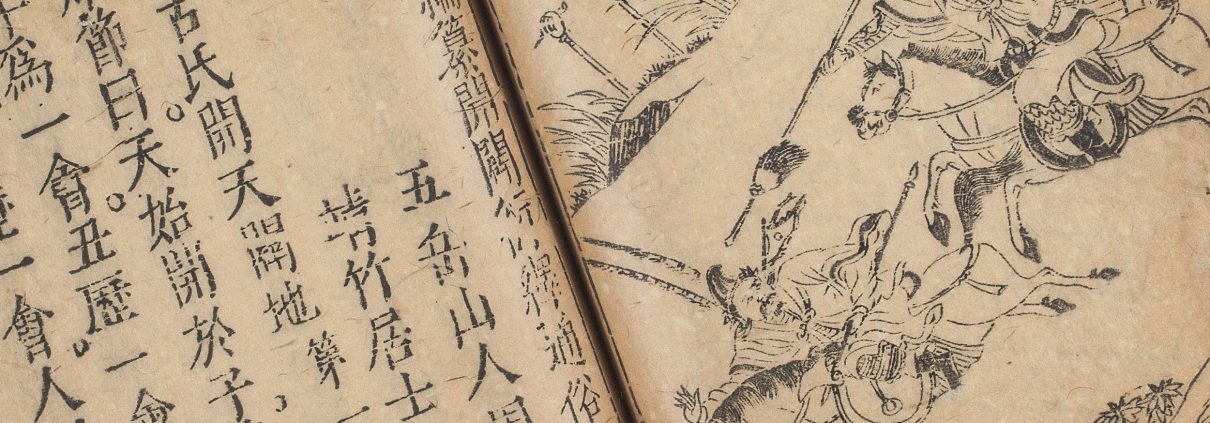 纂開闢衍繹通俗
五岳山人周
靖竹居士
古氏開天闢地第一
節曰。天始開於子。
為一會。丑歷一會
一會。人